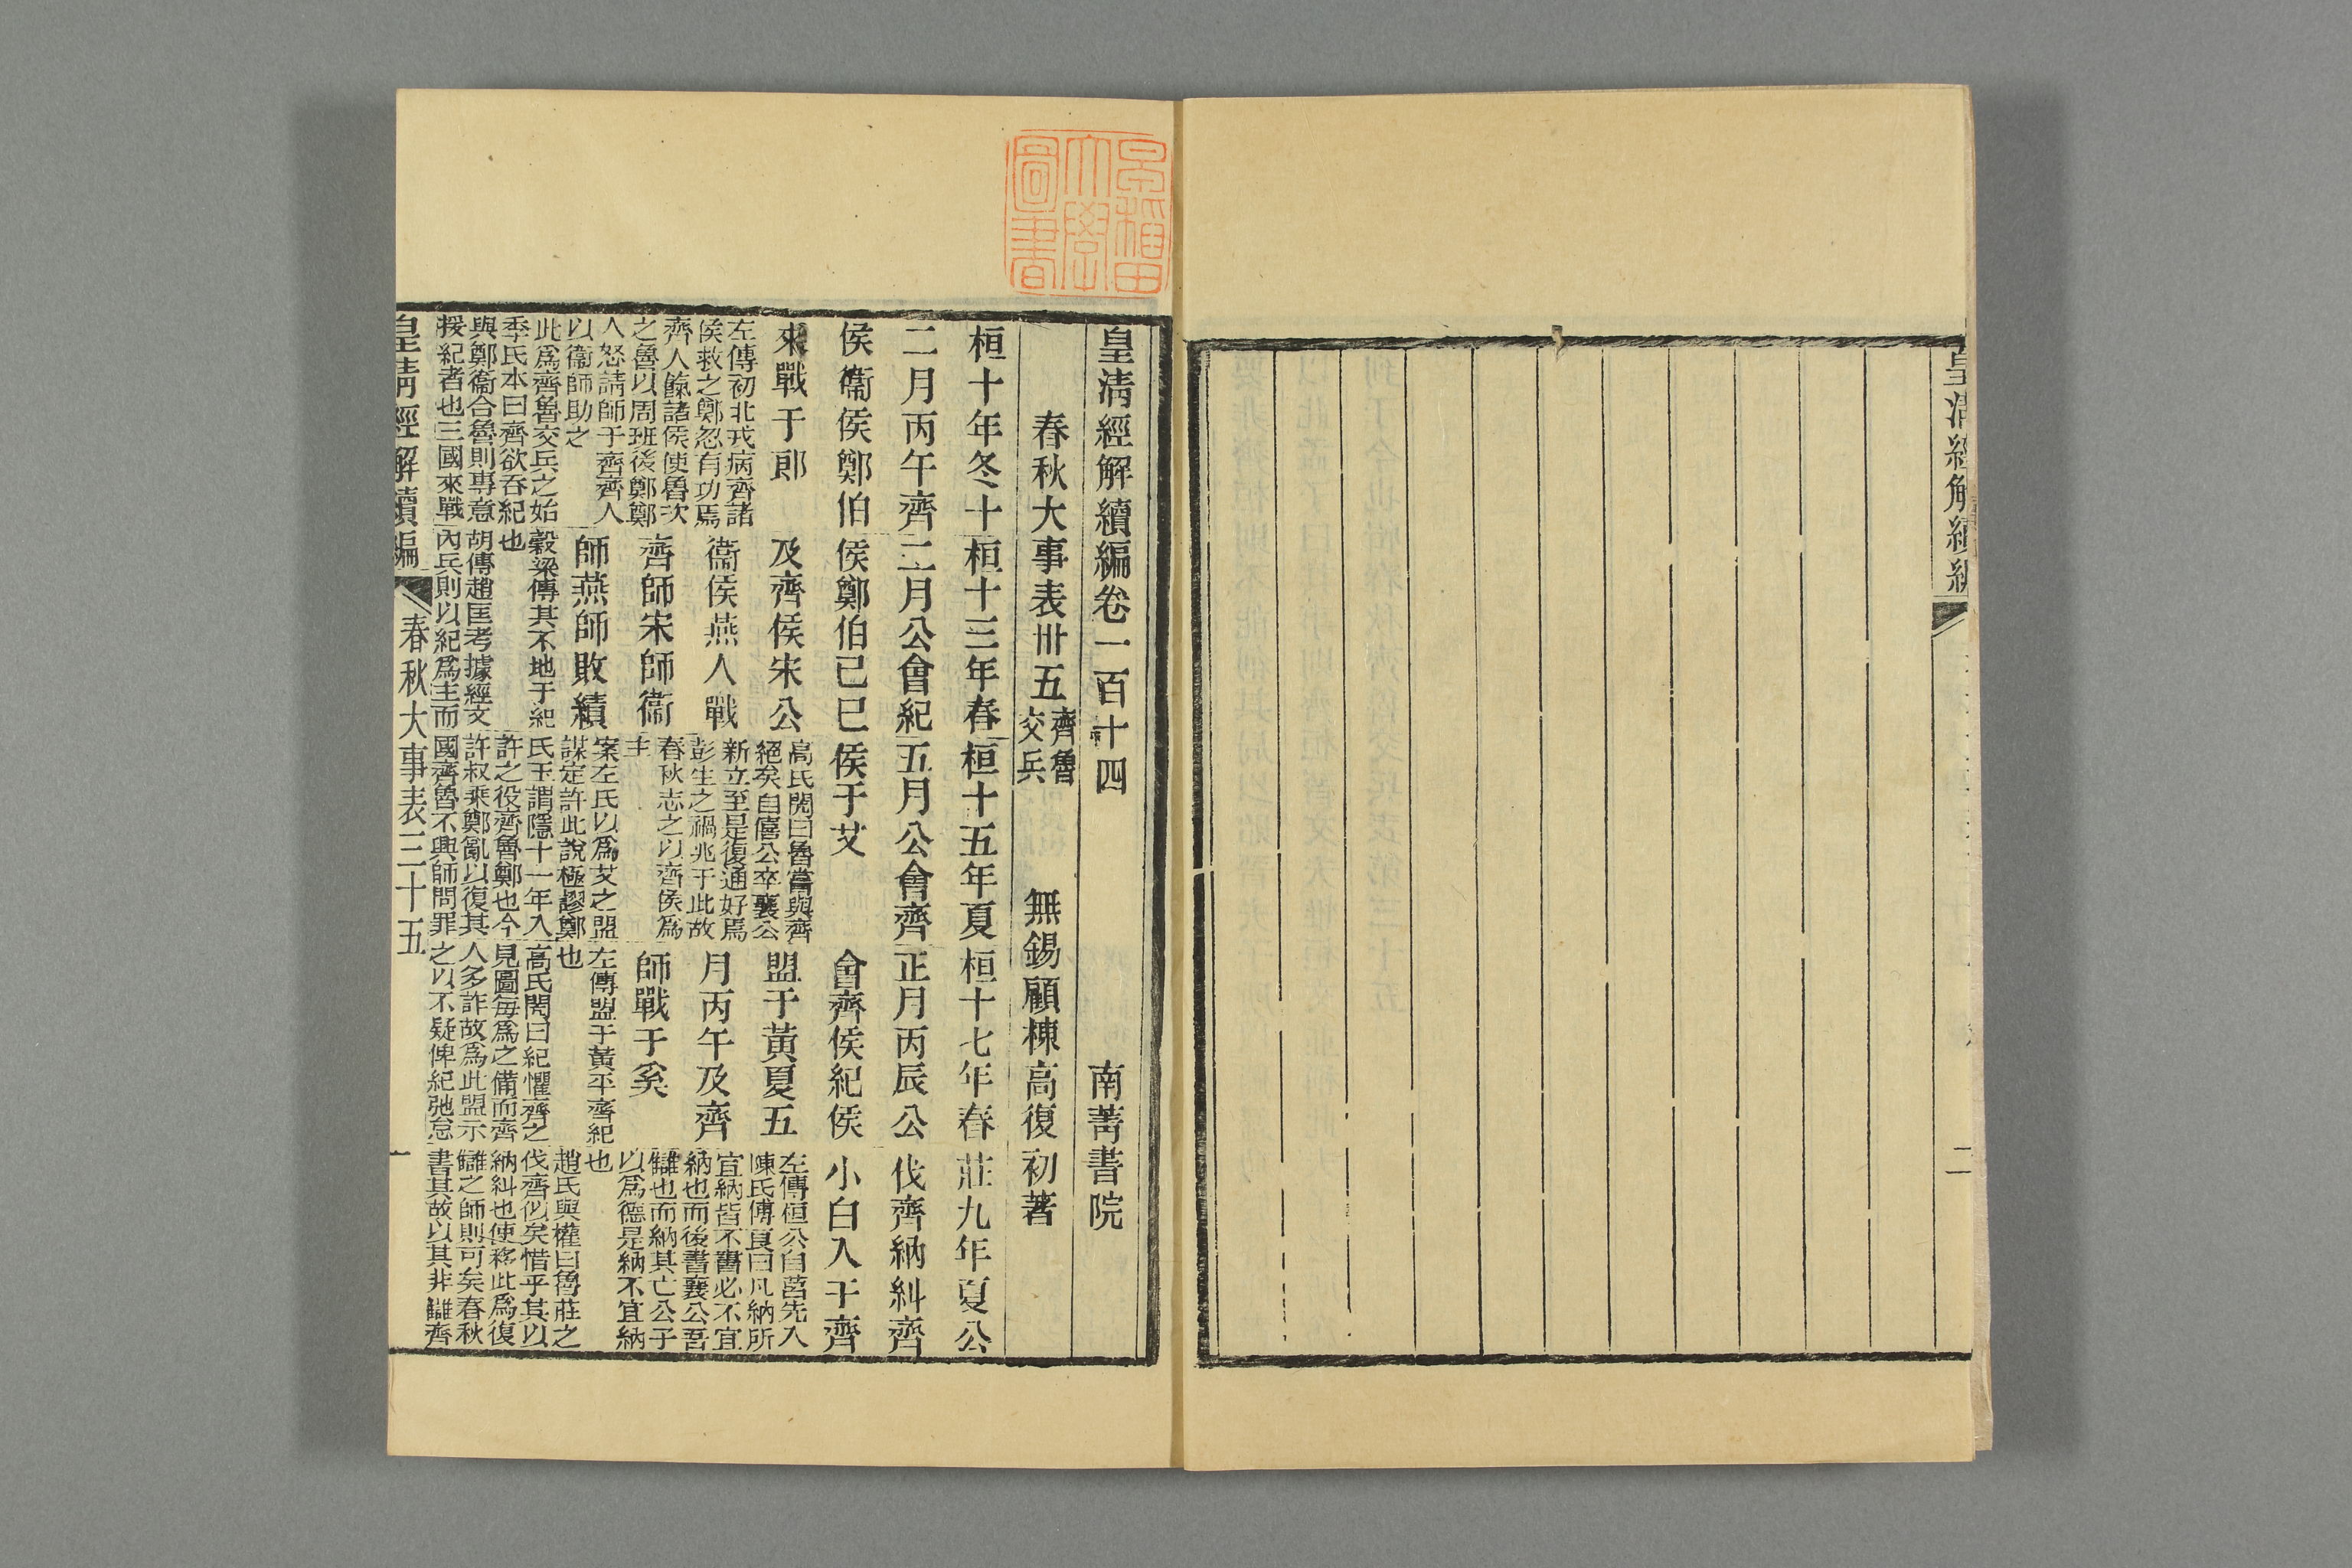 皇清經解續編
二
早稻田
大學
圖書
皇清經解續編卷一百十四
南菁書院
春秋大事表卅五
齊魯
交兵
無錫顧棟高復初著
桓十年冬十
二月丙午齊
侯衞侯鄭伯
來戰于郎
左傳初北戎病齊諸
侯救之鄭忽有功焉
齊人餼諸侯使魯次
之魯以周班後鄭鄭
人怒請師于齊齊人
以衞師助之
此爲齊魯交兵之始
季氏本曰齊欲吞紀
與鄭衞合魯則專意
援紀者也三國來戰
桓十三年春
二月公會紀
侯鄭伯己巳
及齊侯宋公
衞侯燕人戰
齊師宋師衞
師燕師敗績
穀梁傳其不地于紀
也
胡傳趙匡考據經文
內兵則以紀爲主而
桓十五年夏
五月公會齊
侯于艾
高氏閌曰魯嘗與齊
絕矣自僖公卒襄公
新立至是復通好焉
彭生之禍兆于此故
春秋志之以齊侯爲
主
案左氏以爲艾之盟
謀定許此說極謬鄭
氏玉謂隱十一年入
許之役齊魯鄭也今
許叔乘鄭亂以復其
國齊魯不興師問罪
桓十七年春
正月丙辰公
會齊侯紀侯
盟于黃夏五
月丙午及齊
師戰于奚
左傳盟于黃平齊紀
也
高氏閌曰紀懼齊之
見圖每爲之備而齊
人多詐故爲此盟示
之以不疑俾紀弛怠
莊九年夏公
伐齊納糾齊
小白入于齊
左傳桓公自莒先入
陳氏傅良曰凡納所
宜納皆不書必不宜
納也而後書襄公吾
讎也而納其亡公子
以爲德是納不宜納
也
趙氏與權曰魯莊之
伐齊似矣惜乎其以
納糾也使移此爲復
讎之師則可矣春秋
書其故以其非讎齊
皇清經解續編
春秋大事表三十五
一